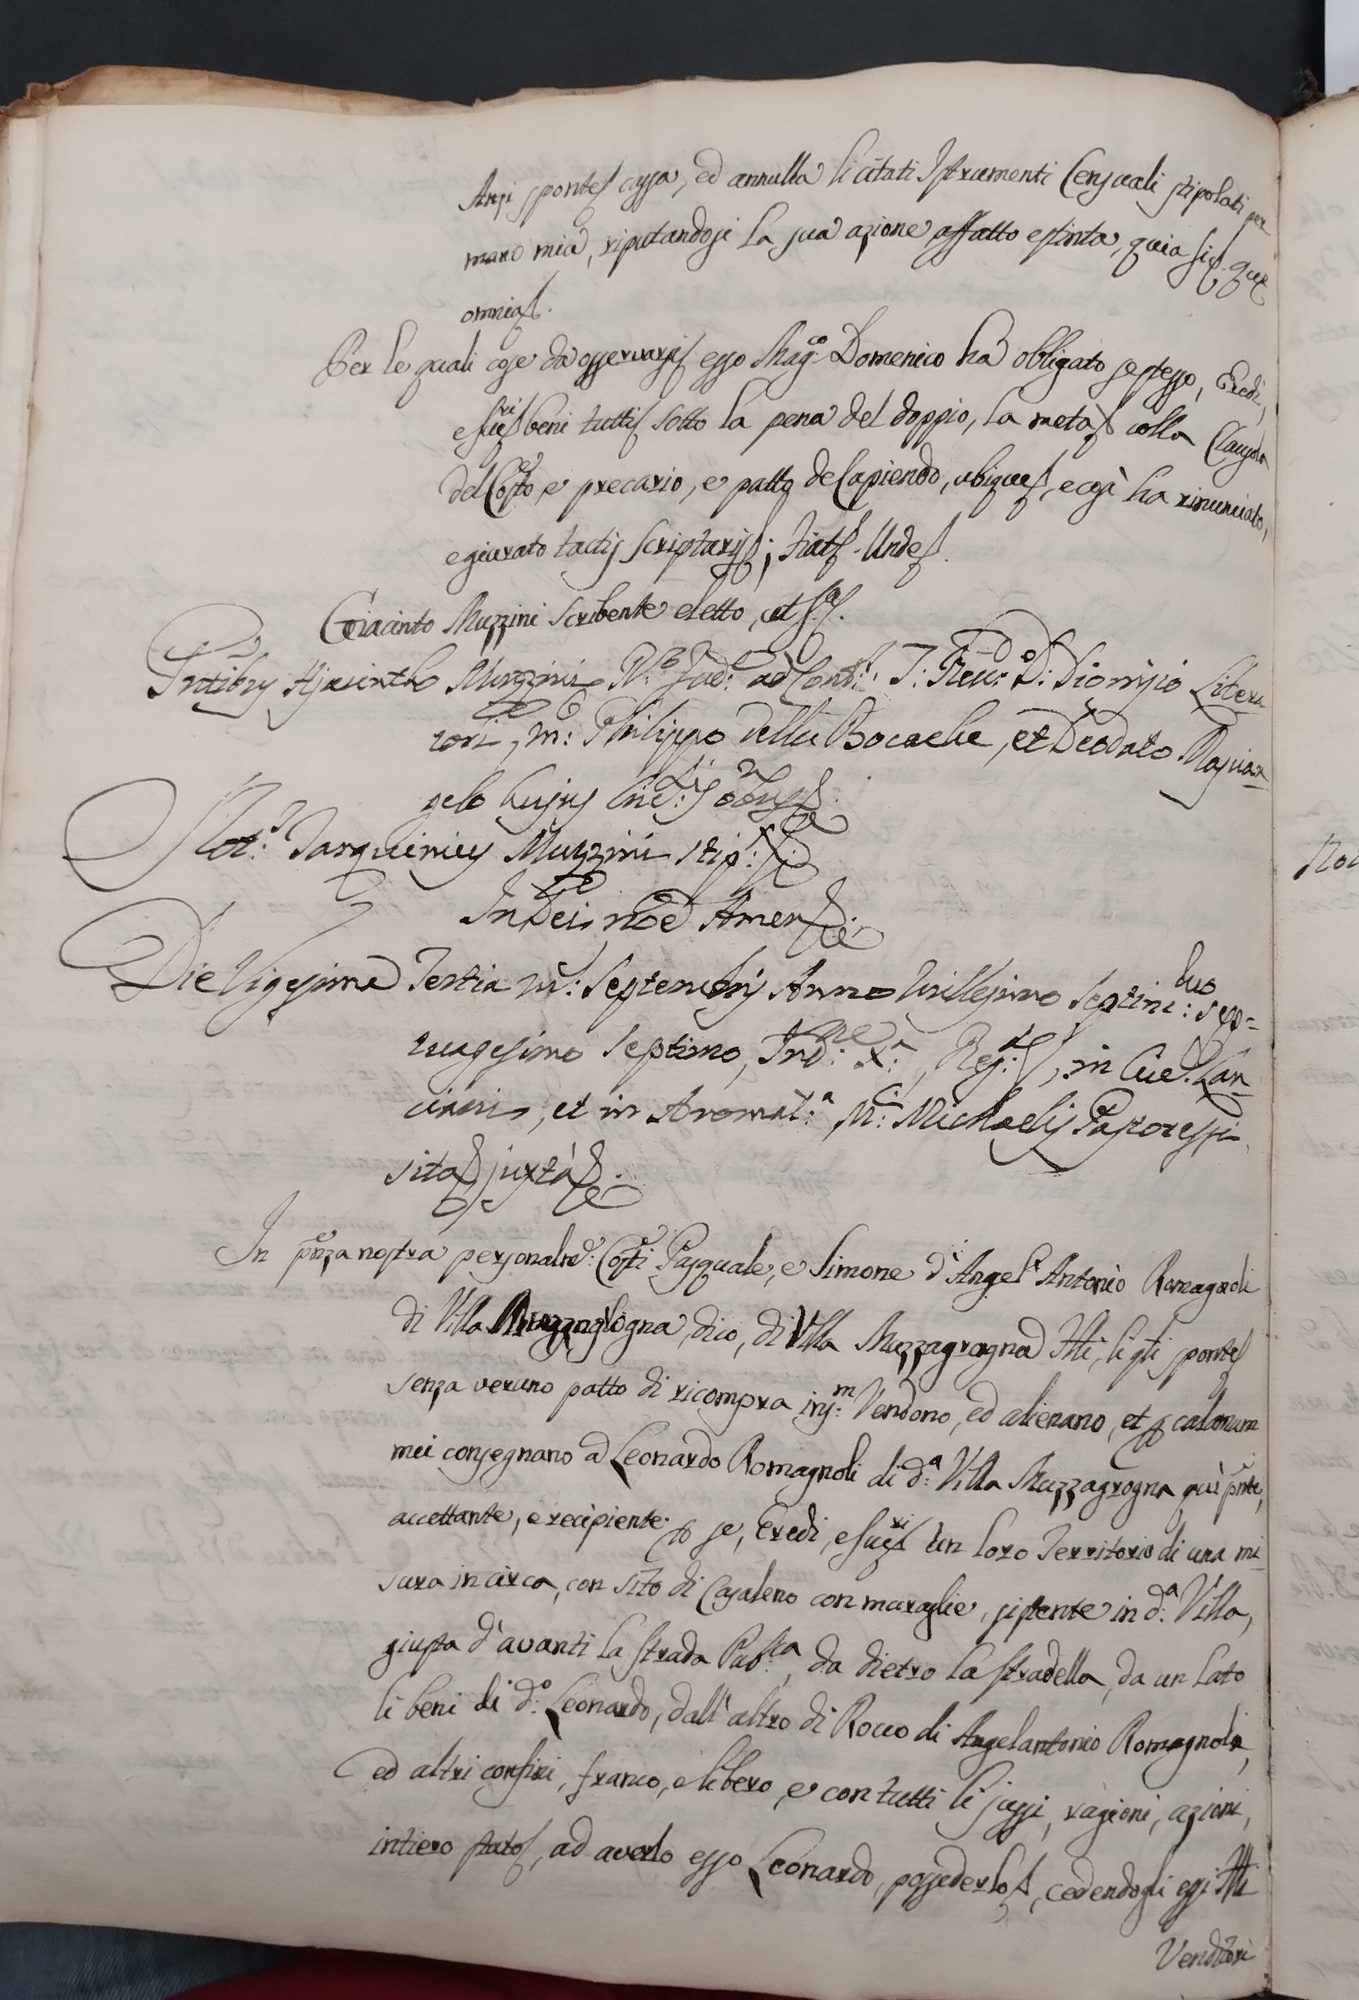 Anzi sponte cassa, ed annulla li citati Istrumenti Censuali stipolati per
mano mia, riputandosi la sua azione affatto estinta, quia sic, que
omnia.
Per le quali cose da osservarsi esso Mag.co Domenico ha obbligato se stesso, Eredi,
e suc.ri beni tutti sotto la pena del doppio, la metà colla Clausola
del Cos.to e precario, e patto de Capiendo, ubique, e così ha rinunciato,
e giurato tactis scripturis; Fiat. Unde
Giacinto Muzzini scribente eletto, et
Pntibus Hjacintho Muzzini R.o Jud: ad Cont: T: Rev.do D: Dionisio Libera
tori, m: Philippo delli Bocache, et Deodato Masciar
gelo hujus Civ.tis
Not: Tarquinius Muzzini stip:
In Dei noe Amen
Die Vigesima Tertia m: Septembris Anno Millesimo Septin: Sep-
tuagesimo Septimo, Ind.ne X.a, Reg:, in Civ. Lan
ciani, et in Aromat.a M.ci Michaelis Pastoressi
sita juxta
In pnza nostra personalm: Cos.ti Pasquale, e Simone d'Angel'Antonio Romagnoli
di Villa dico, di Villa Mozzagrogna Itti, li qti sponte
senza veruno patto di ricompra ins.m Vendono, ed alienano, et p calamum
mei consegnano a Leonardo Romagnoli di d.a Villa Mozzagrogna quì pnte,
accettante, e recipiente p se, Eredi, e suc.ri Un loro Territorio di una mi
sura in circa, con sito di Casaleno con muraglie, sistente in d.a Villa,
giusta d'avanti la strada Pub.ca, da dietro la stradella, da un lato
li beni di d.o Leonardo, dall'altro di Rocco di Angelantonio Romagnoli,
ed altri confini, franco, e libero, e con tutti li jussi, ragioni, azioni,
intiero stato, ad averlo esso Leonardo, possederlo, cedendogli essi Itti
Venditori